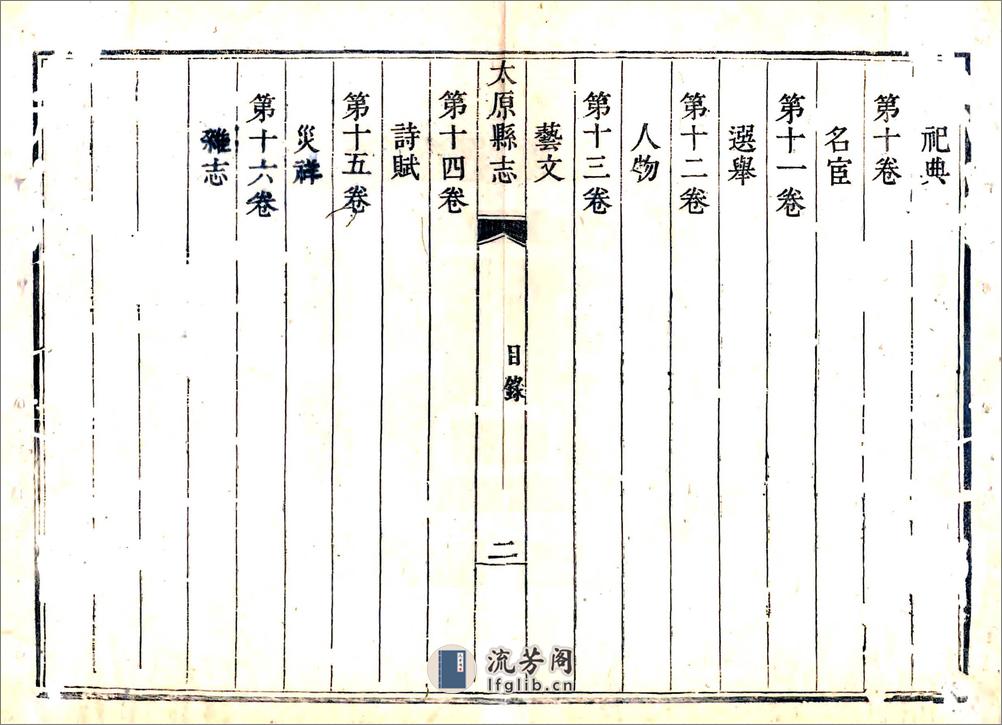 祀典
第十卷
名宦
第十一卷
選舉
第十二卷
人物
第十三卷
藝文
太原縣志
目錄
二
第十四卷
詩賦
第十五卷
災祥
第十六卷
雜志
流芳阁
lfglib.cn